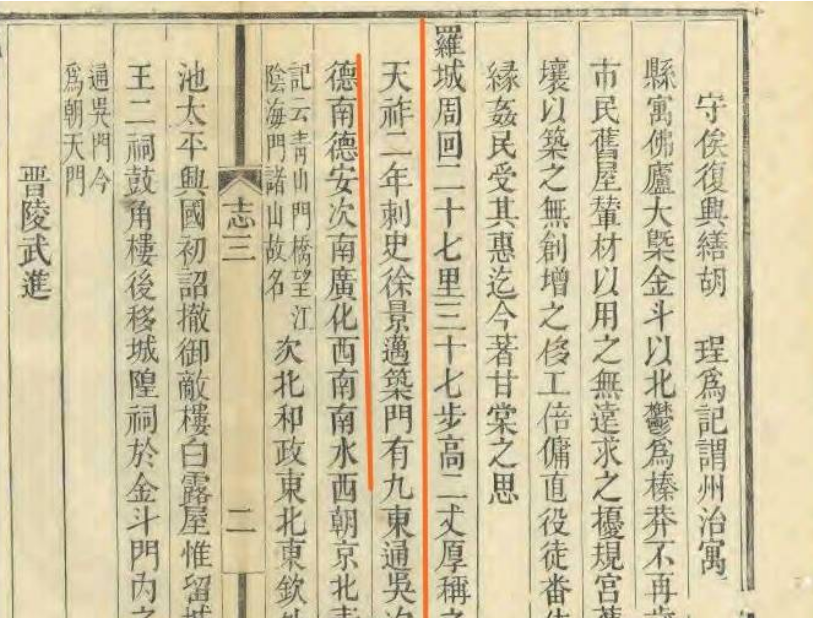 守侯復興繕胡　珵爲記謂州治寓
縣寓佛廬大槩金斗以北鬱爲榛莽不再
市民舊屋輦材以用之無遠求之擾規宮
壤以築之無創增之侈工倍傭直役徒畨
緣姦民受其惠迄今著甘棠之思
羅城周回二十七里三十七步高二丈厚稱之
天祚二年刺史徐景邁築門有九東通吳次
德南德安次南廣化西南南水西朝京北青
記云青山門橋望江
陰海門諸山故名
次北和政東北東欽
志三　二
池太平興國初詔撤御敵樓白露屋惟留城
王二祠鼓角樓後移城隍祠於金斗門內之
通吳門今
爲朝天門
晉陵武進